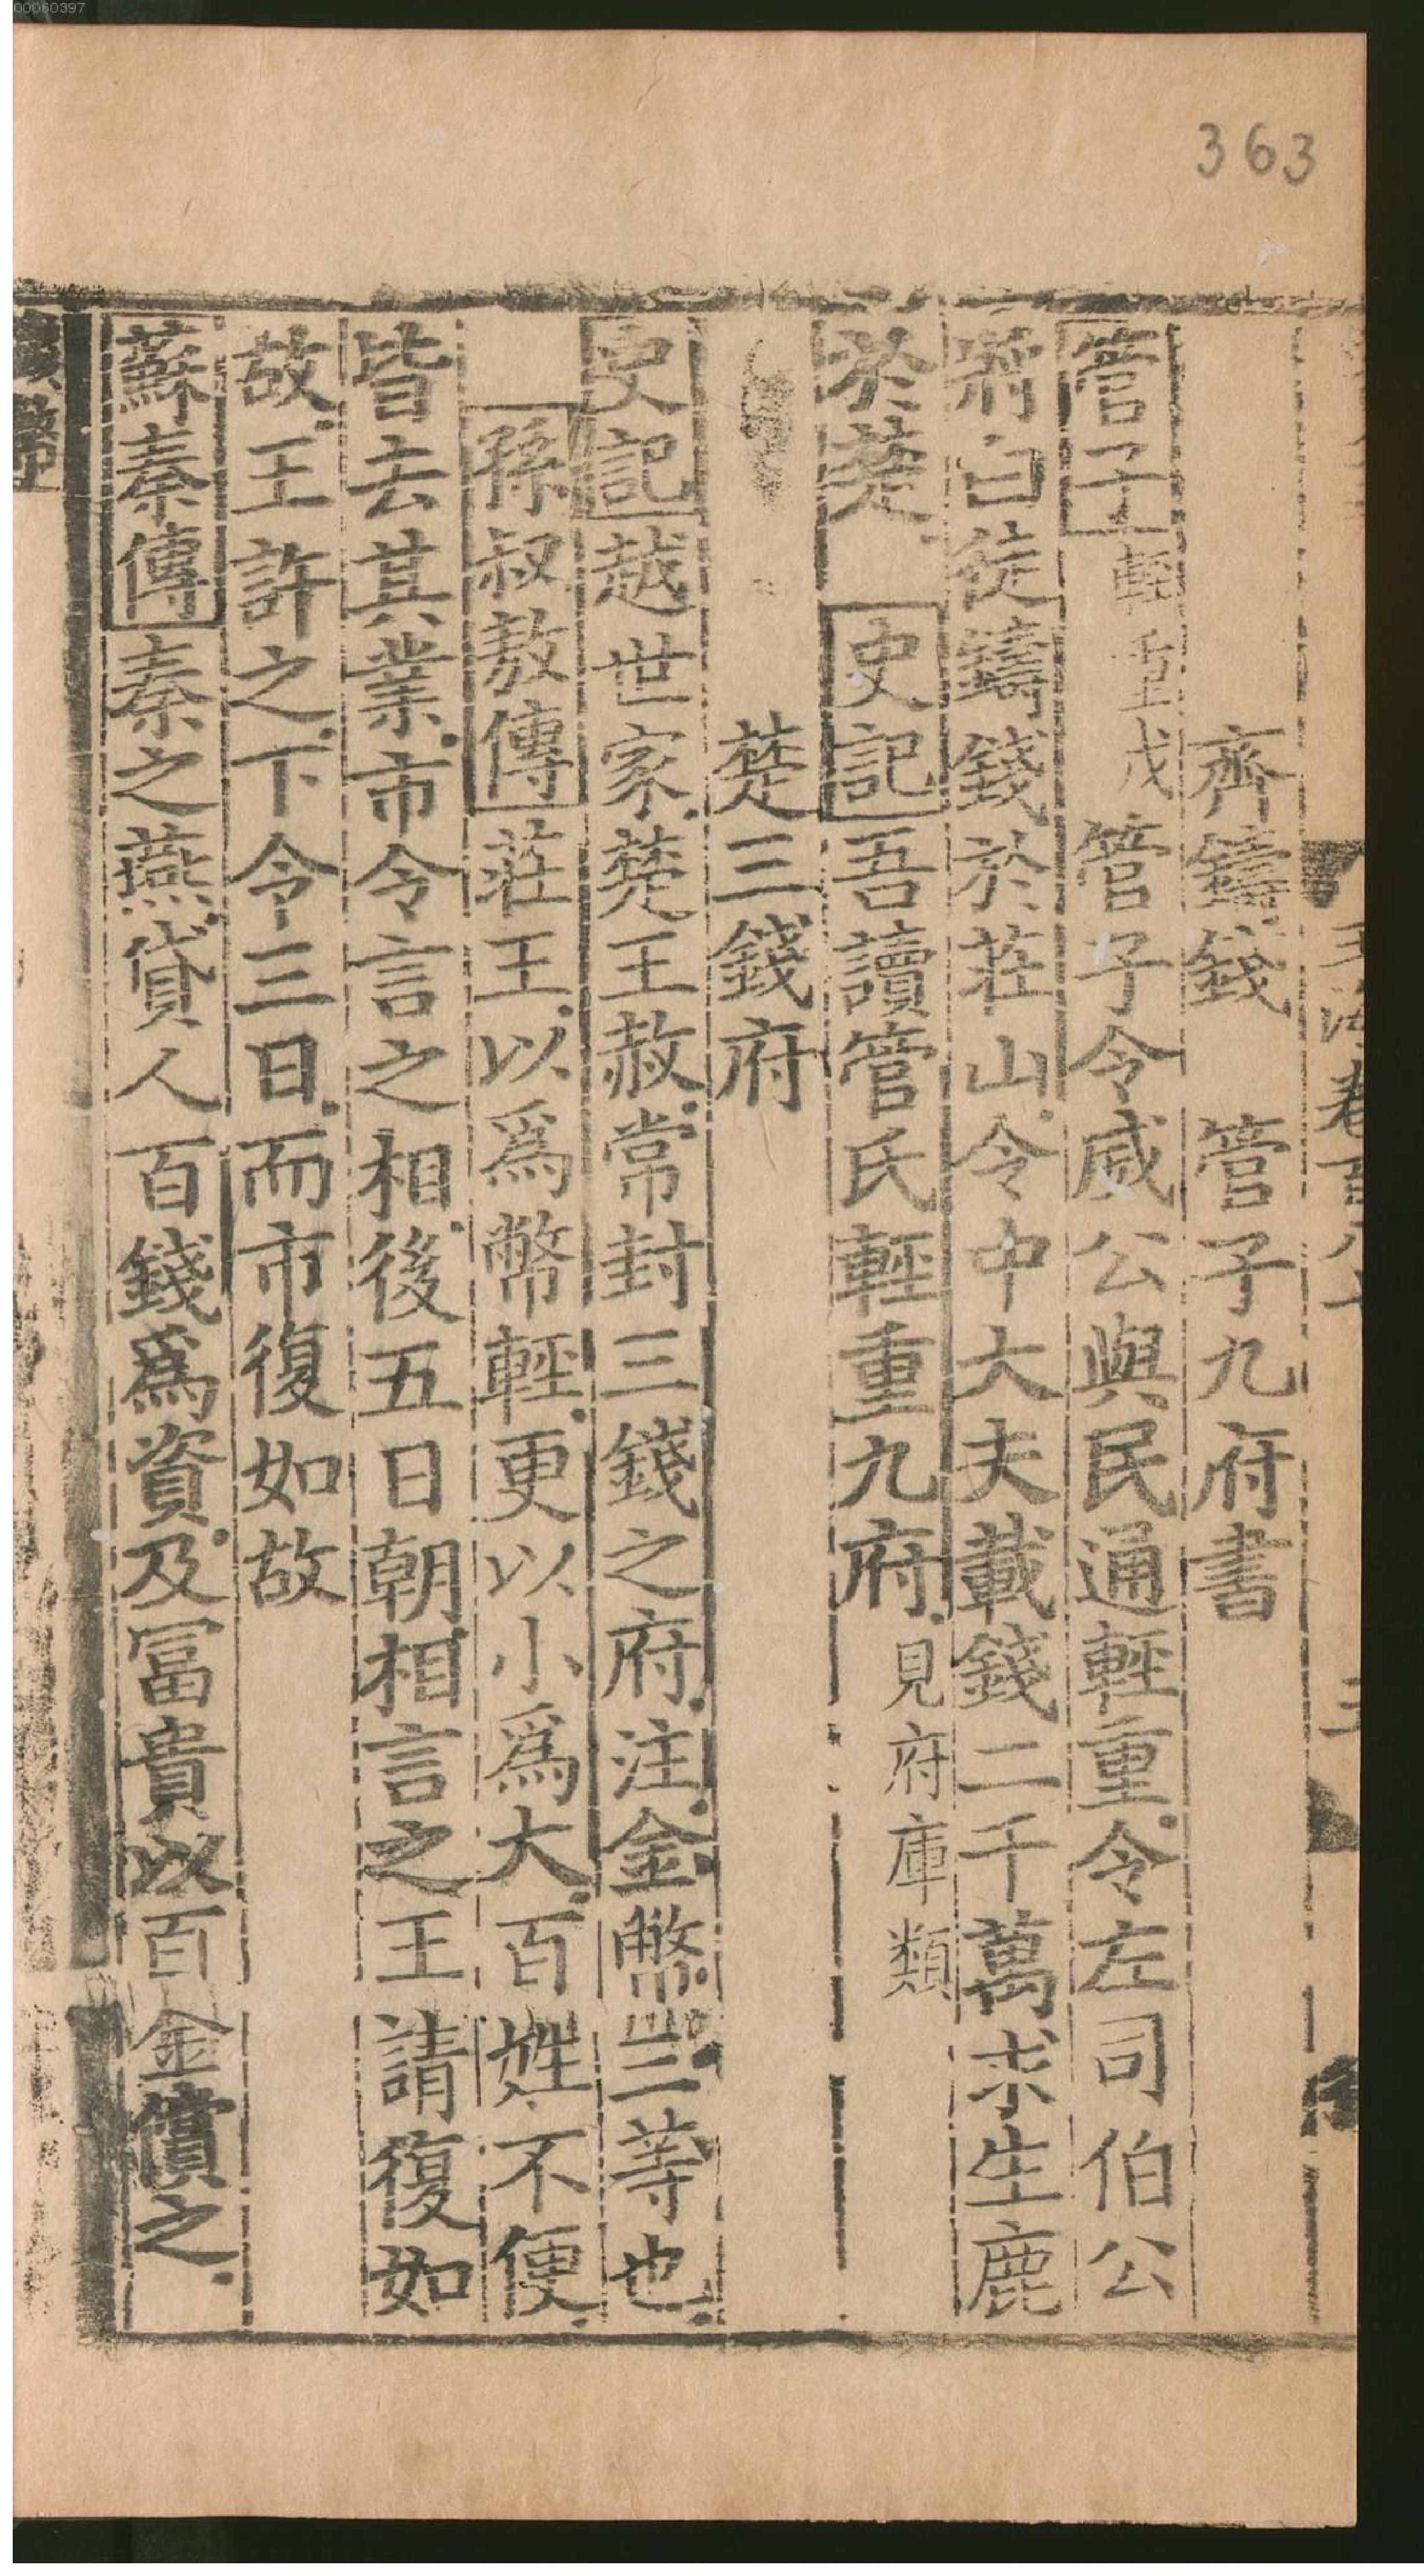 00060397
363
齊鑄錢　管子九府書
管子輕重戊管子令威公與民通輕重令左司伯公
將白徒鑄錢於莊山令中大夫載錢二千萬求生鹿
於楚　史記吾讀管氏輕重九府見府庫類
楚三錢府
史記越世家楚王赦常封三錢之府注金幣三等也
孫叔敖傳莊王以為幣輕更以小為大百姓不便
皆去其業市令言之相後五日朝相言之王請復如
故王許之下令三日而市復如故
蘇秦傳秦之燕貸人百錢為資及冨貴以百金償之